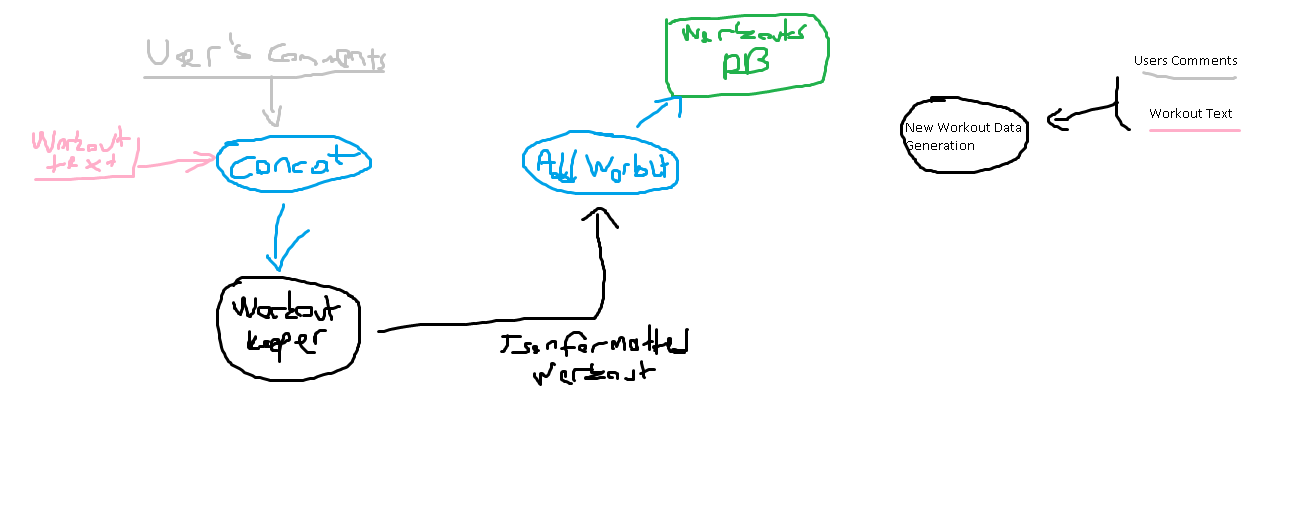 User's Comments
Workout
text
Concat
Workout
keeper
Json formatted
Workout
Add Workout
Workouts
DB
Users Comments
Workout Text
New Workout Data
Generation